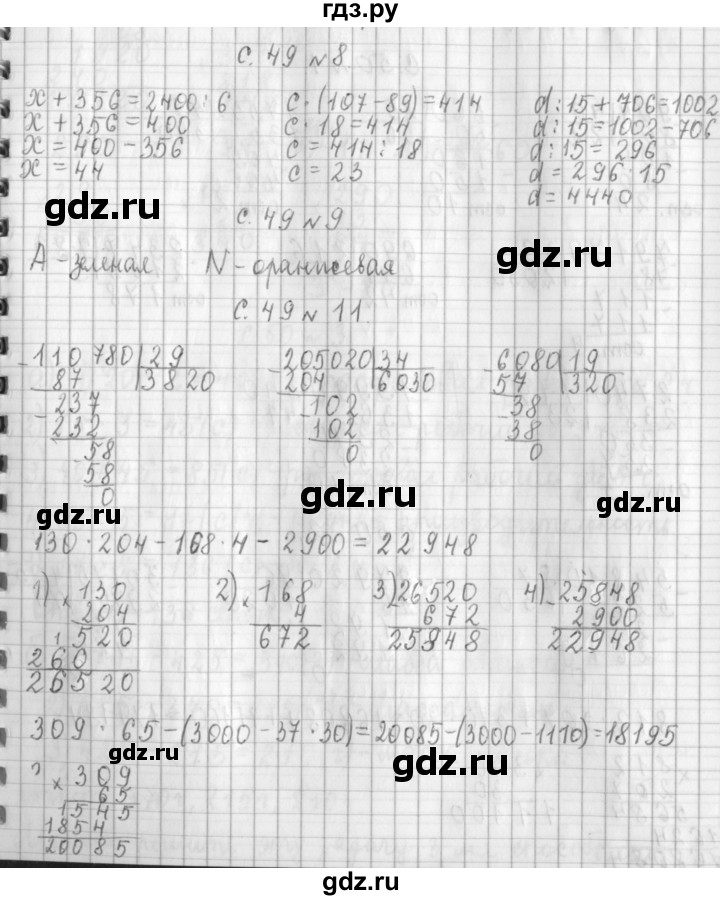 гдз.ру
с. 49 N 8
x + 356 = 2400 : 6
x + 356 = 400
x = 400 - 356
x = 44
c · (107 - 89) = 414
c · 18 = 414
c = 414 : 18
c = 23
d : 15 + 706 = 1002
d : 15 = 1002 - 706
d : 15 = 296
d = 296 · 15
d = 4440
gdz.ru
с. 49 N 9
gdz.ru
А - зеленая N - оранжевая
с. 49 N 11.
- 110780 | 29
87 | 3820
- 237
232
- 58
58
0
- 205020 | 34
204 | 6030
- 102
102
0
- 6080 | 19
57 | 320
- 38
38
0
gdz.ru
gdz.ru
gdz.ru
130 · 204 - 168 · 4 - 2900 = 22948
1) × 130
204
1 520
260
26520
2) × 168
4
672
3) - 26520
672
25848
4) - 25848
2900
22948
309 · 65 - (3000 - 37 · 30) = 20085 - (3000 - 1110) = 18195
gdz.ru
gdz.ru
× 309
65
1545
1854
20085
gdz.ru